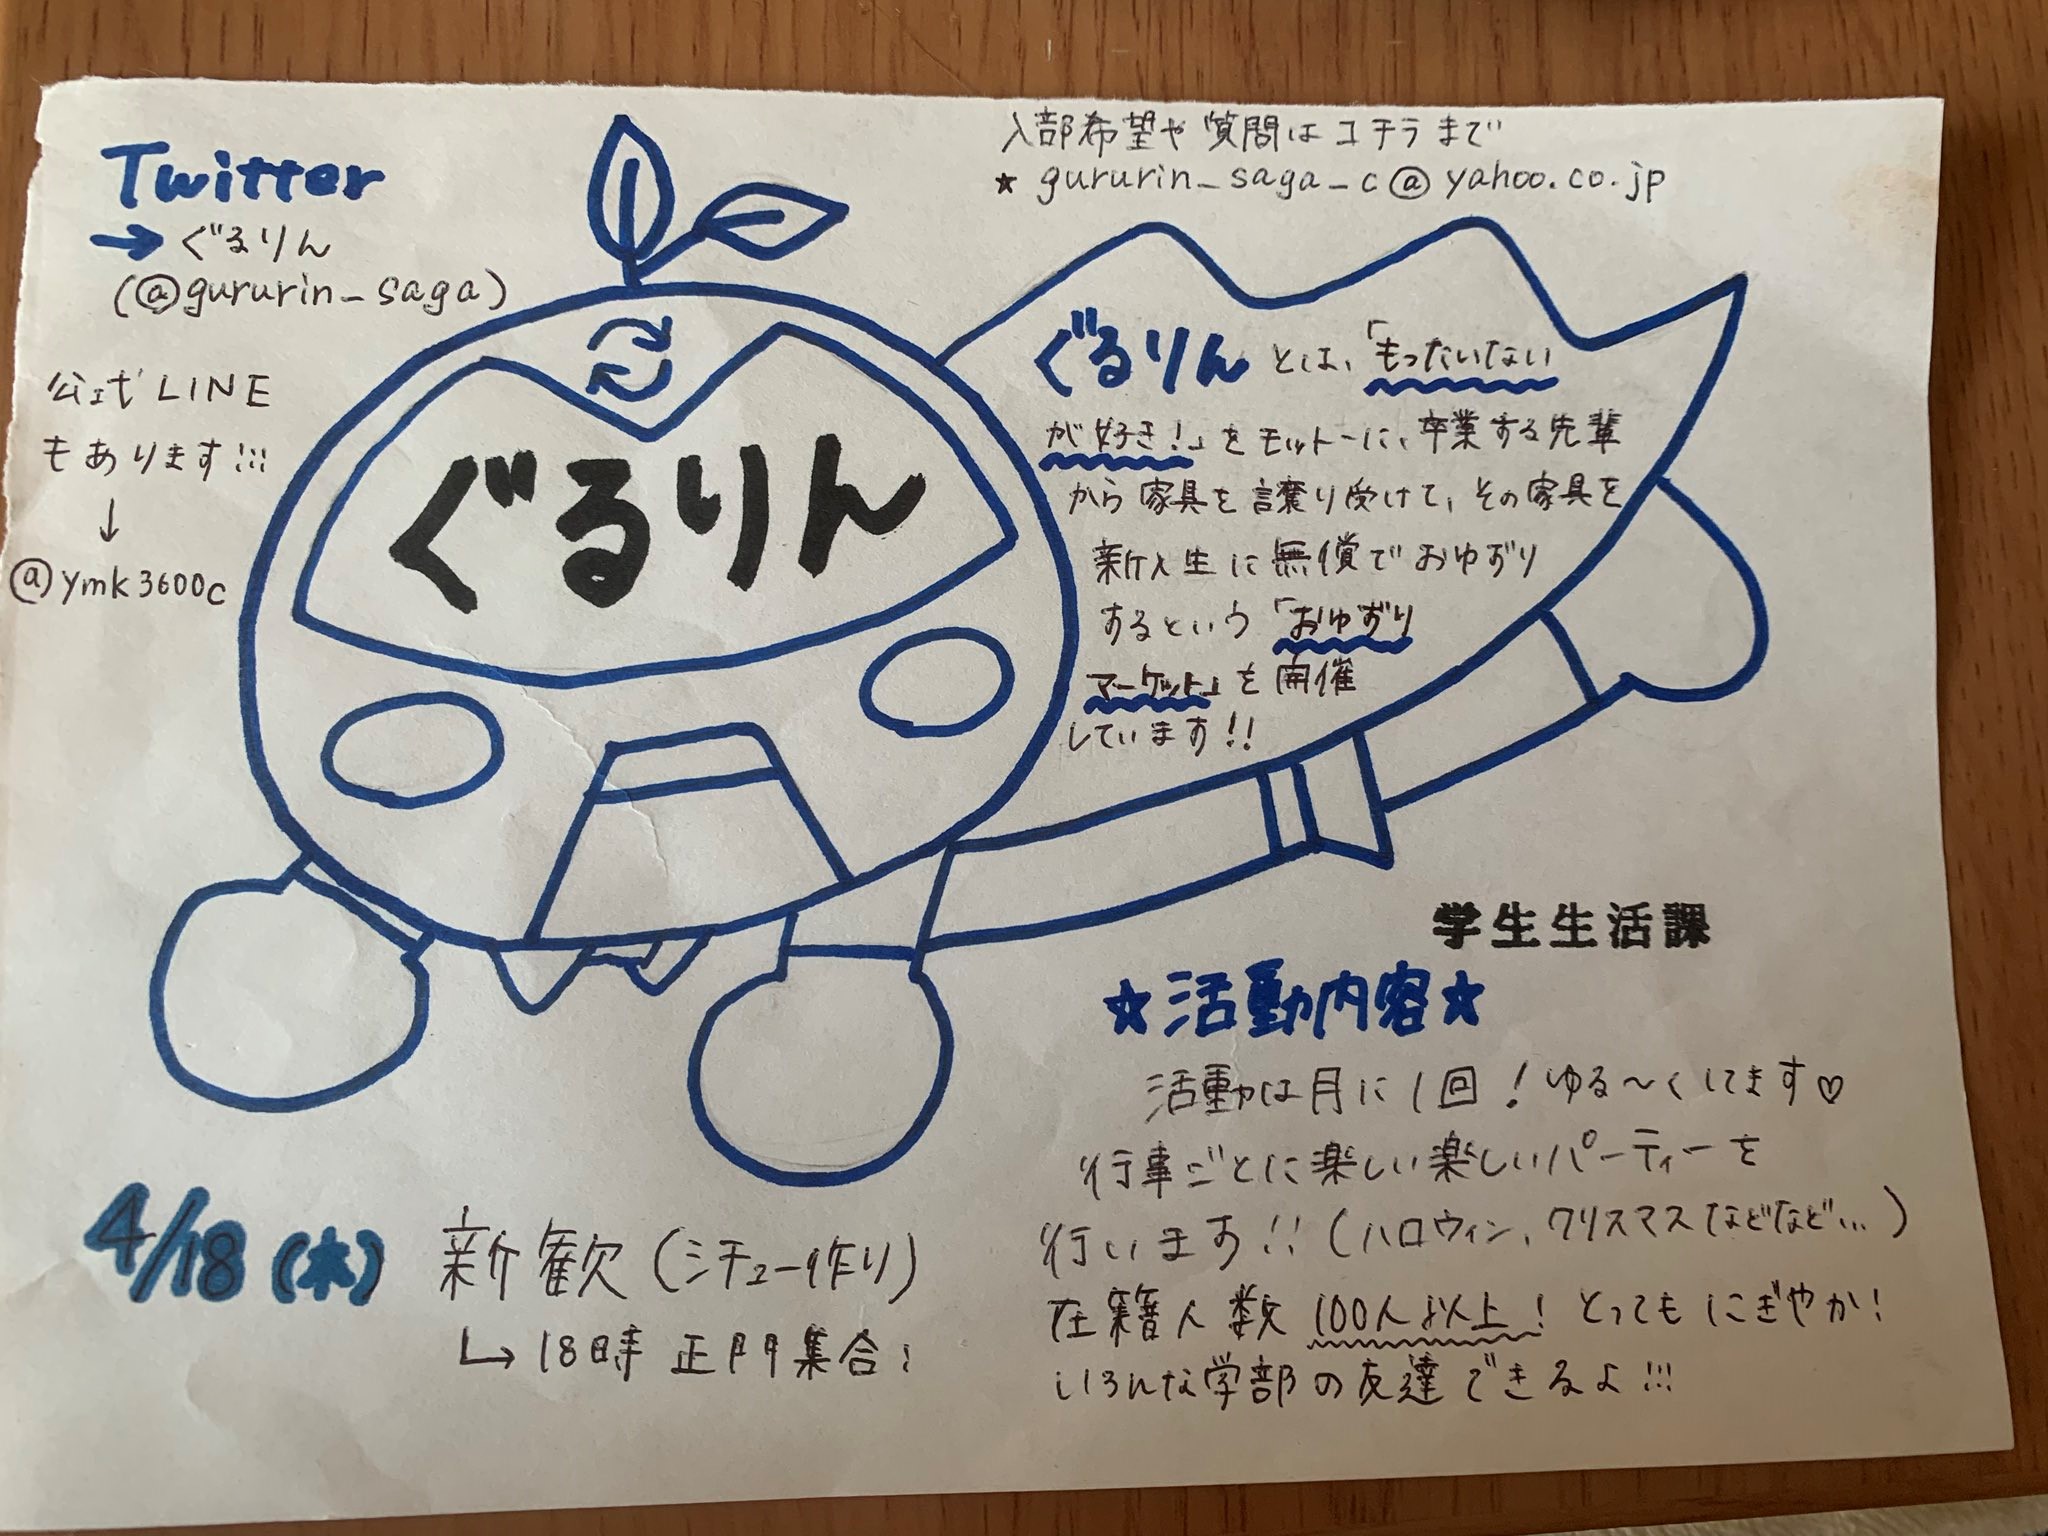 Twitter
→ ぐるりん
(@gururin_saga)
公式LINE
もあります!!!
↓
@ymk3600c
入部希望や質問はコチラまで
★ gururin_saga_c@yahoo.co.jp
ぐるりん
ぐるりんとは、「もったいない
が好き!」をモットーに、卒業する先輩
から家具を譲り受けて、その家具を
新入生に無償でおゆずり
するという「おゆずり
マーケット」を開催
しています!!
学生生活課
☆活動内容☆
活動は月に1回!ゆる〜くしてます♡
行事ごとに楽しい楽しいパーティーを
行います!!(ハロウィン、クリスマスなどなど…)
在籍人数100人以上!とってもにぎやか!
いろんな学部の友達できるよ!!!
4/18(木) 新歓(シチュー作り)
↳18時 正門集合!